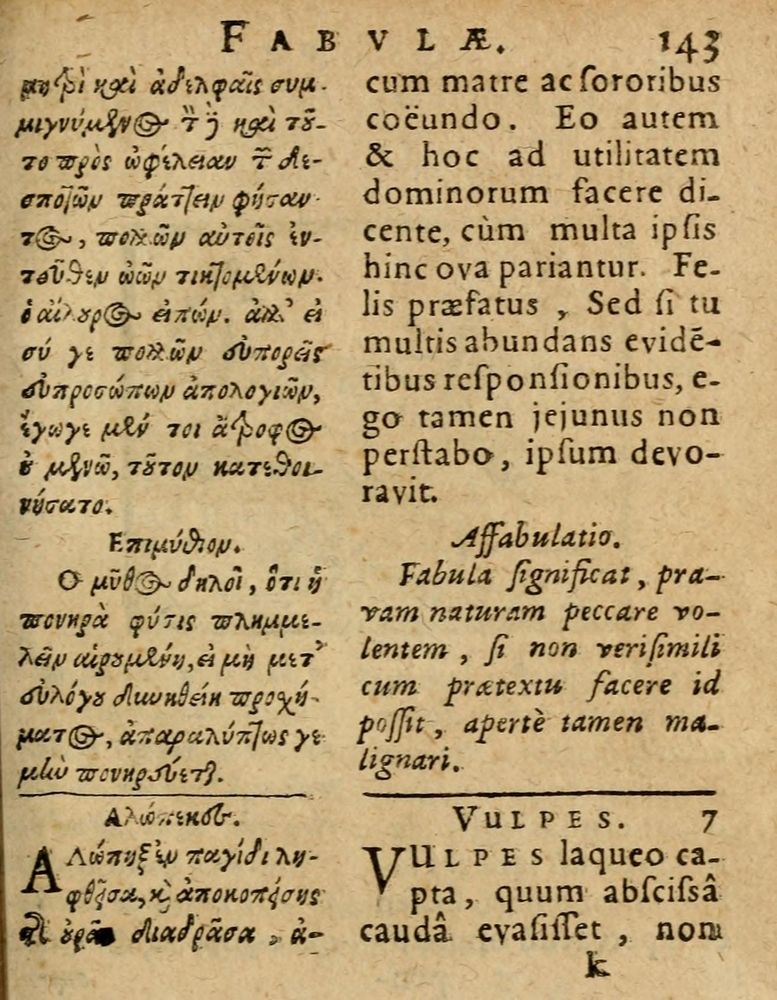 FABVLÆ. 143
μητρὶ καὶ ἀδελφαῖς συμ-
μιγνύμενος· τοῦ δὲ καὶ τοῦ-
το πρὸς ὠφέλειαν τῶν δε-
σποτῶν πράττειν φήσαν-
τος, πολλῶν αὐτοῖς ἐν-
τεῦθεν ὠῶν τικτομένων.
ὁ αἴλουρος εἰπών. ἀλλ' εἰ
σύ γε πολλῶν εὐπορεῖς
εὐπροσώπων ἀπολογιῶν,
ἔγωγε μέν τοι ἄτροφος
οὐ μενῶ, τοῦτον κατεθοι-
νήσατο.
Επιμύθιον.
Ο μῦθος δηλοῖ, ὅτι ἡ
πονηρὰ φύσις πλημμε-
λεῖν αἱρουμένη, εἰ μὴ μετ'
εὐλόγου δυνηθείη προσχή-
ματος, ἀπαρακαλύπτως γε
μὴν πονηρεύεται.
Αλώπηξ.
Αλώπηξ ἐν παγίδι λη-
φθεῖσα, καὶ ἀποκοπείσης
τῆς οὐρᾶς διαδρᾶσα, ἀ-
cum matre ac ſororibus
coëundo. Eo autem
& hoc ad utilitatem
dominorum facere di-
cente, cùm multa ipſis
hinc ova pariantur. Fe-
lis præfatus, Sed ſi tu
multis abundans evidẽ-
tibus reſponſionibus, e-
go tamen jejunus non
perſtabo, ipſum devo-
ravit.
Affabulatio.
Fabula ſignificat, pra-
vam naturam peccare vo-
lentem, ſi non veriſimili
cum prætextu facere id
poſſit, apertè tamen ma-
lignari.
VULPES. 7
VULPES laqueo ca-
pta, quum abſciſsâ
caudâ evaſiſſet, non
k